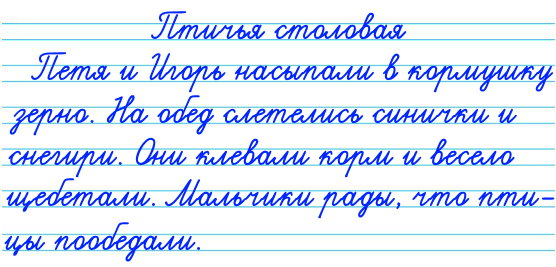 Птичья столовая
Петя и Игорь насыпали в кормушку
зерно. На обед слетелись синички и
снегири. Они клевали корм и весело
щебетали. Мальчики рады, что пти-
цы пообедали.